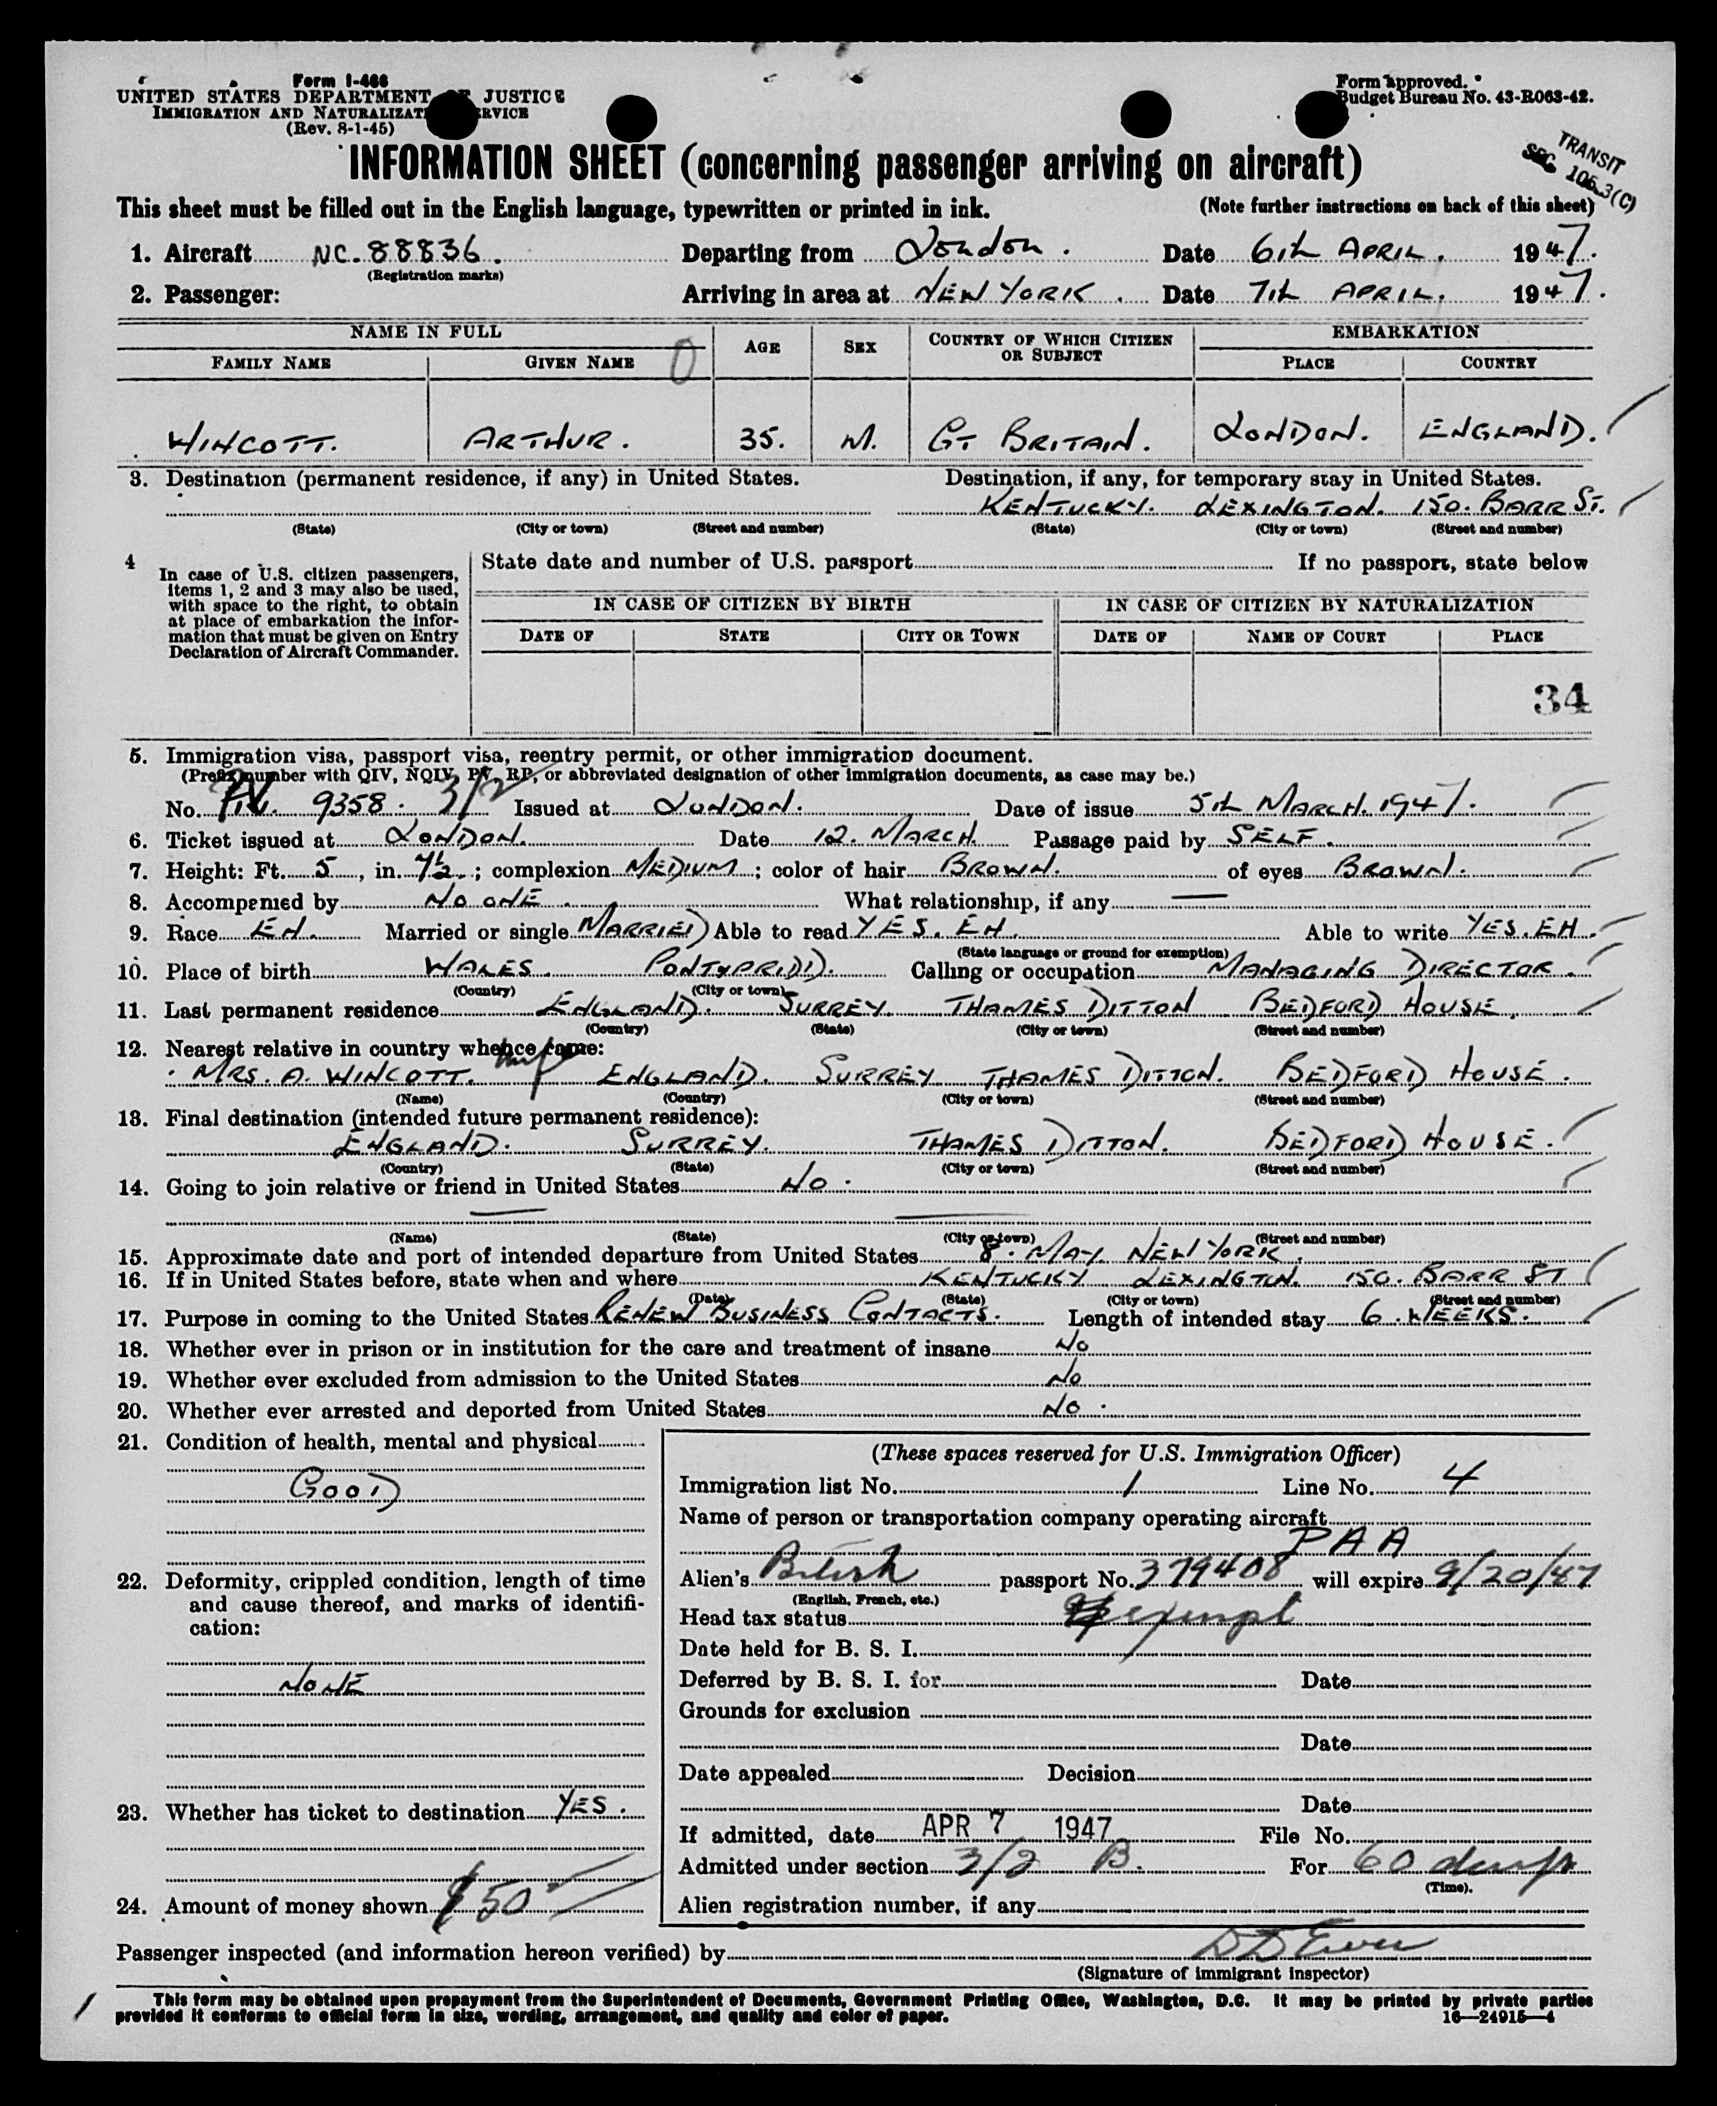 Form I-466
UNITED STATES DEPARTMENT OF JUSTICE
IMMIGRATION AND NATURALIZATION SERVICE
(Rev. 8-1-45)
Form approved.
Budget Bureau No. 43-R063-42.
TRANSIT
SEC 105.3(C)
INFORMATION SHEET (concerning passenger arriving on aircraft)
This sheet must be filled out in the English language, typewritten or printed in ink. (Note further instructions on back of this sheet)
1. Aircraft NC. 88836. Departing from London. Date 6th APRIL. 1947.
(Registration marks)
2. Passenger: Arriving in area at NEW YORK. Date 7th APRIL. 1947.
NAME IN FULL EMBARKATION
FAMILY NAME GIVEN NAME 0 AGE SEX COUNTRY OF WHICH CITIZEN OR SUBJECT PLACE COUNTRY
WINCOTT. ARTHUR. 35. M. GT BRITAIN. LONDON. ENGLAND.
3. Destination (permanent residence, if any) in United States. Destination, if any, for temporary stay in United States.
KENTUCKY. LEXINGTON. 150. BARR ST.
(State) (City or town) (Street and number) (State) (City or town) (Street and number)
4 In case of U.S. citizen passengers, items 1, 2 and 3 may also be used, with space to the right, to obtain at place of embarkation the information that must be given on Entry Declaration of Aircraft Commander.
State date and number of U.S. passport If no passport, state below
IN CASE OF CITIZEN BY BIRTH IN CASE OF CITIZEN BY NATURALIZATION
DATE OF STATE CITY OR TOWN DATE OF NAME OF COURT PLACE
34
5. Immigration visa, passport visa, reentry permit, or other immigration document.
(Prefix number with QIV, NQIV, PV, RP, or abbreviated designation of other immigration documents, as case may be.)
No. P.V. 9358. 3/2 Issued at LONDON. Date of issue 5th MARCH. 1947.
6. Ticket issued at LONDON. Date 12. MARCH. Passage paid by SELF.
7. Height: Ft. 5, in. 7½.; complexion MEDIUM; color of hair BROWN. of eyes BROWN.
8. Accompanied by NO ONE. What relationship, if any —
9. Race EN. Married or single MARRIED Able to read YES. EN. Able to write YES. EN.
(State language or ground for exemption)
10. Place of birth WALES. PONTYPRIDD. Calling or occupation MANAGING DIRECTOR.
(Country) (City or town)
11. Last permanent residence ENGLAND. SURREY. THAMES DITTON BEDFORD HOUSE.
(Country) (State) (City or town) (Street and number)
12. Nearest relative in country whence came:
MRS. A. WINCOTT. wife ENGLAND. SURREY THAMES DITTON. BEDFORD HOUSE.
(Name) (Country) (City or town) (Street and number)
13. Final destination (intended future permanent residence):
ENGLAND. SURREY. THAMES DITTON. BEDFORD HOUSE.
(Country) (State) (City or town) (Street and number)
14. Going to join relative or friend in United States NO.
(Name) (State) (City or town) (Street and number)
15. Approximate date and port of intended departure from United States 8. MAY. NEW YORK.
16. If in United States before, state when and where KENTUCKY LEXINGTON. 150. BARR ST
(Date) (State) (City or town) (Street and number)
17. Purpose in coming to the United States RENEW BUSINESS CONTACTS. Length of intended stay 6 WEEKS.
18. Whether ever in prison or in institution for the care and treatment of insane NO
19. Whether ever excluded from admission to the United States NO
20. Whether ever arrested and deported from United States NO.
21. Condition of health, mental and physical
GOOD
22. Deformity, crippled condition, length of time and cause thereof, and marks of identification:
NONE
23. Whether has ticket to destination YES.
24. Amount of money shown $50
(These spaces reserved for U.S. Immigration Officer)
Immigration list No. 1 Line No. 4
Name of person or transportation company operating aircraft
PAA
Alien's British passport No. 379408 will expire 9/20/47
(English, French, etc.)
Head tax status exempt
Date held for B. S. I.
Deferred by B. S. I. for Date
Grounds for exclusion
Date
Date appealed Decision
Date
If admitted, date APR 7 1947 File No.
Admitted under section 3/2 B. For 60 days
(Time).
Alien registration number, if any
Passenger inspected (and information hereon verified) by
(Signature of immigrant inspector)
This form may be obtained upon prepayment from the Superintendent of Documents, Government Printing Office, Washington, D.C. It may be printed by private parties
provided it conforms to official form in size, wording, arrangement, and quality and color of paper. 16—24915—4